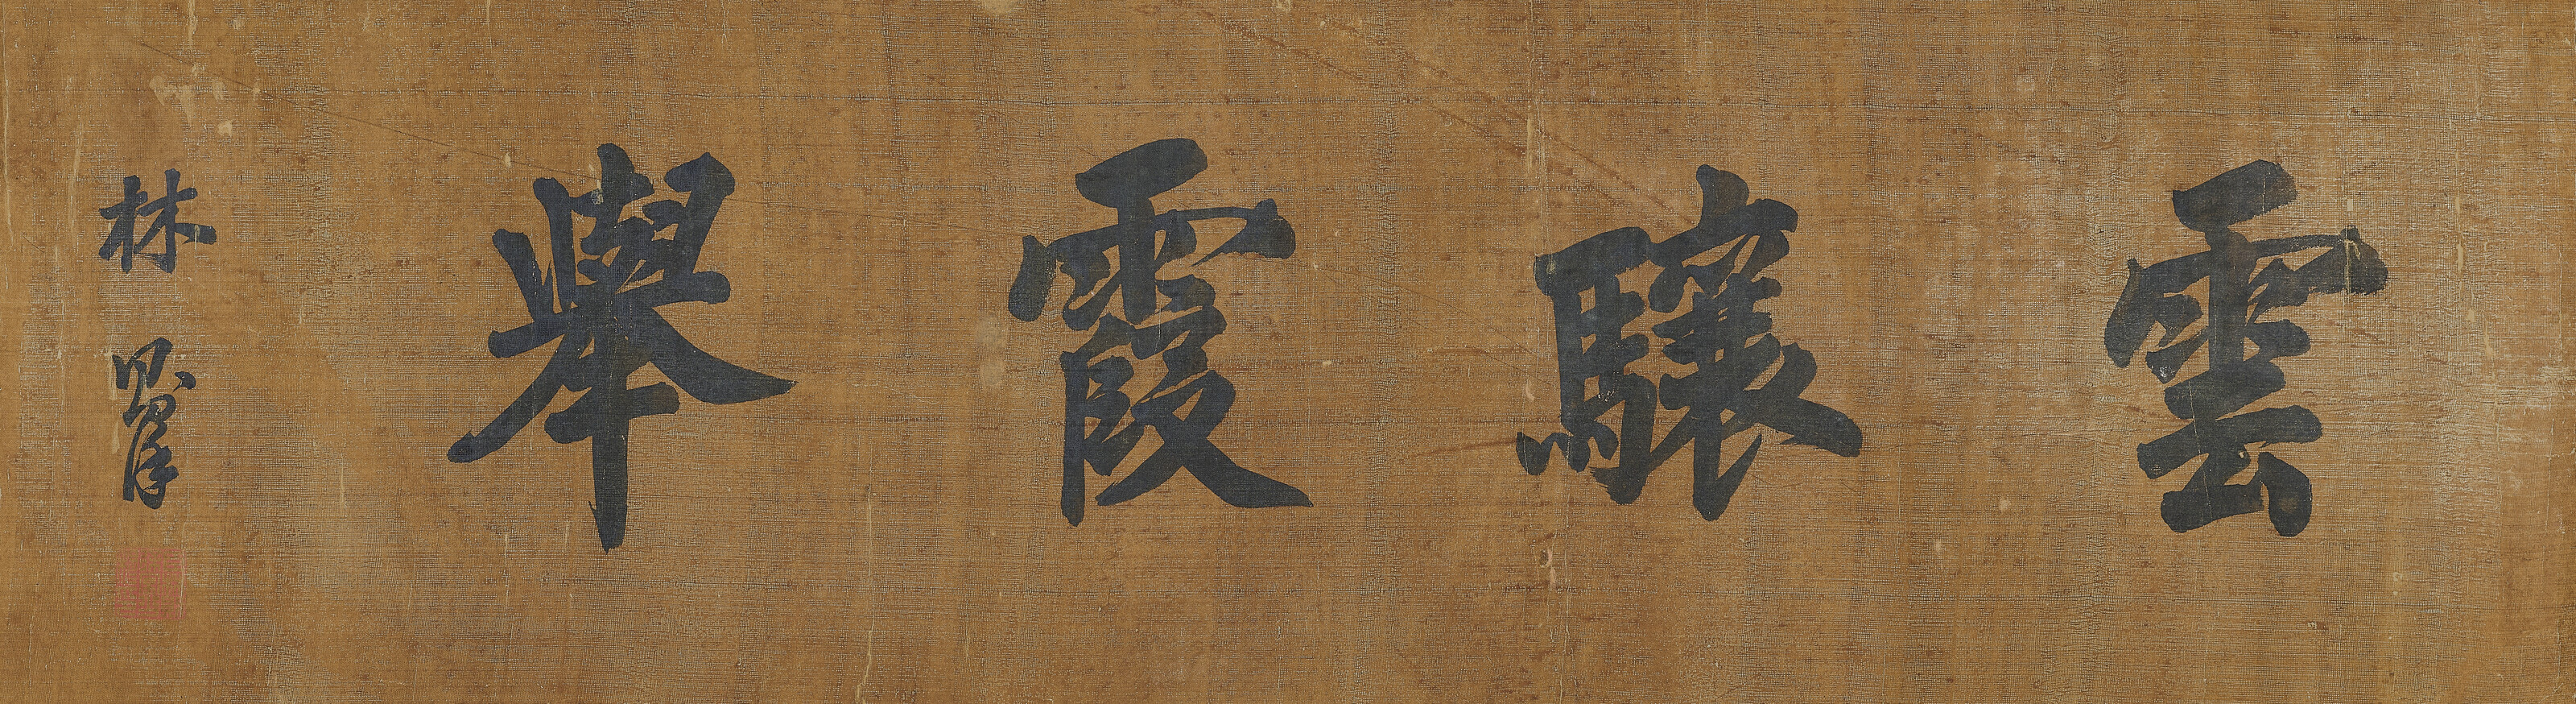 雲驤霞舉
林翟